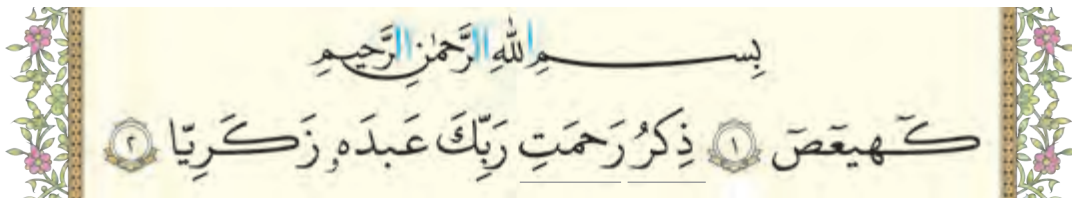 بِسمِ اللهِ الرَّحمٰنِ الرَّحیمِ
کٓهیعٓصٓ ﴿١﴾ ذِکرُ رَحمَتِ رَبِّکَ عَبدَهۥ زَکَرِیّا ﴿٢﴾